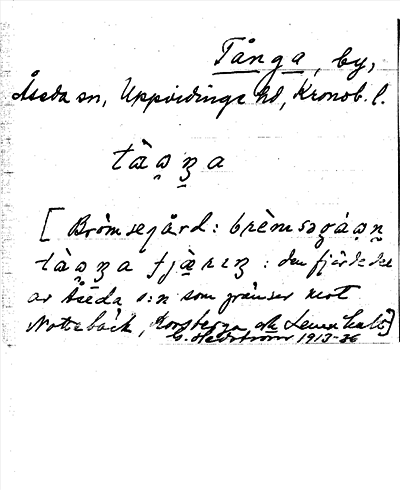 Tånga, by,
Åseda sn, Uppvidinge hd, Kronob. l.
tàa̯ŋa
[ Brömsegård: brèmsəgáa̯ṇ
tàa̯ŋa fjæ̀rıŋ : den fjärdedel
av Åseda s:n som gränser mot
Nottebäck, Korsberga och Lenhovda]
G. Hedström 1913-36